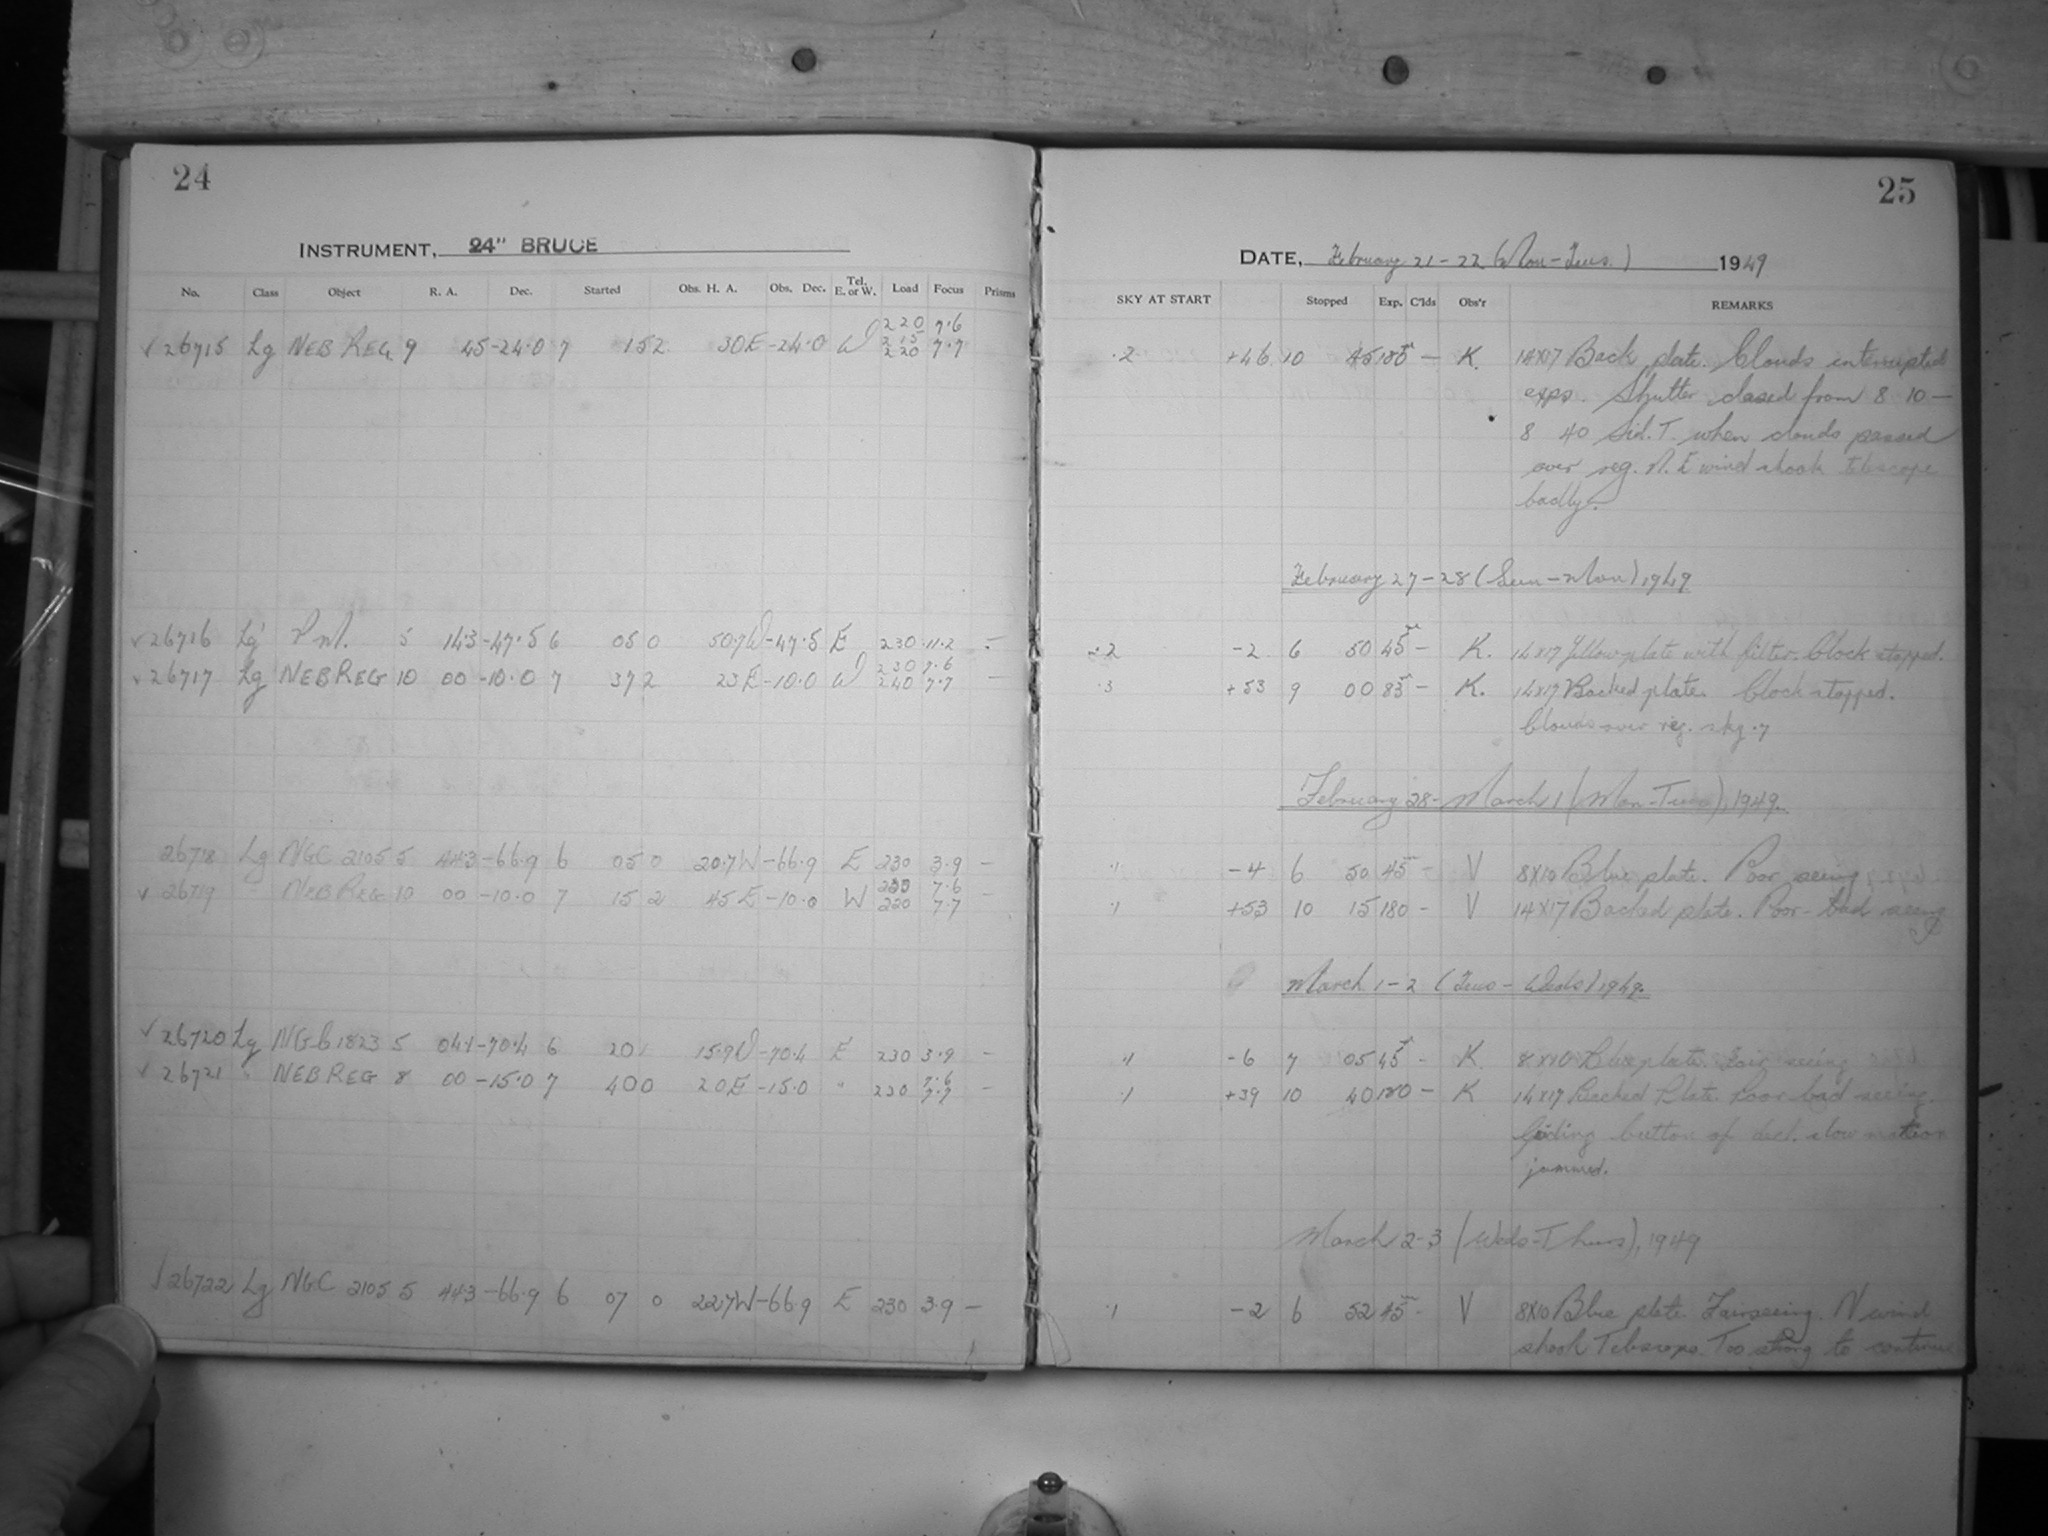 24
INSTRUMENT, 24" BRUCE
No. Class Object R. A. Dec. Started Obs. H. A. Obs. Dec. Tel. E. or W. Load Focus Prisms
220 7.6
√ 26715 Lg NEB REG 9 45 -24.0 7 15 2 30E -24.0 W 215
220 7.7
√ 26716 Lg 5 14.3 -47.5 6 05 0 50.7W -47.5 E 230 11.2 -
√ 26717 Lg NEB REG 10 00 -10.0 7 37 2 23E -10.0 W 230 7.6 -
240 7.7
26718 Lg NGC 2105 5 44.3 -66.9 6 05 0 20.7W -66.9 E 230 3.9 -
√ 26719 " NEB REG 10 00 -10.0 7 15 2 45E -10.0 W 220 7.6 -
220 7.7
√ 26720 Lg NGC 1823 5 04.1 -70.4 6 20 15.9W -70.4 E 230 3.9 -
√ 26721 " NEB REG 8 00 -15.0 7 40 0 20E -15.0 " 230 7.6 -
7.7
√ 26722 Lg NGC 2105 5 44.3 -66.9 6 07 0 22.7W -66.9 E 230 3.9 -
25
DATE, February 21-22 (Mon-Tues.) 1949
SKY AT START Stopped Exp. C'lds Obs'r REMARKS
.2 +46 10 45 180m - K. 14X17 Back plate. Clouds interrupted
exps. Shutter closed from 8 10 -
8 40 Sid. T. when clouds passed
over reg. N. E wind shook telescope
badly.
February 27-28 (Sun-Mon) 1949
.2 -2 6 50 45m - K. 14x17 Yellow plate with filter. Clock stopped.
.3 +53 9 00 83m - K. 14x17 Backed plate. Clock stopped.
Clouds over reg. sky .7
February 28- March 1 (Mon-Tues), 1949.
.1 -4 6 50 45m - V 8X10 Blue plate. Poor seeing
.1 +53 10 15 180 - V 14X17 Backed plate. Poor-bad seeing
March 1-2 (Tues - Weds) 1949.
.1 -6 7 05 45m - K. 8X10 Blue plate. Fair seeing
.1 +39 10 40 180 - K 14x17 Backed Plate. Poor-bad seeing.
Guiding button of decl. slow motion
jammed.
March 2-3 (Weds-Thurs), 1949
.1 -2 6 52 45m - V 8X10 Blue plate. Fair seeing. N wind
shook Telescope. Too strong to continue